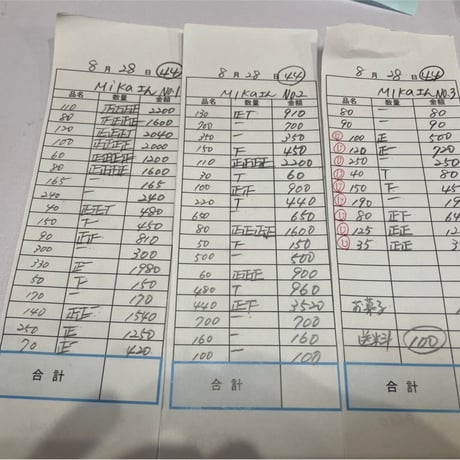 8月28日 44
Mikaさん No.1
品名 数量 金額
110 正正正正 2200
80 正正正正 1600
120 正正正T 2040
100 正正正正 2000
60 正正正正 1200
80 正正正正 1600
165 一 165
240 一 240
40 正正T 480
150 下 450
90 正正 810
300 一 300
330 正 1980
50 下 150
170 一 170
140 正正 1540
250 正 1250
70 正 420
合計
8月28日 44
MIKAさん No.2
品名 数量 金額
130 正T 910
700 一 700
350 一 350
150 下 450
110 正正正正 2200
30 T 60
100 正正 900
220 T 440
650 一 650
80 正正正正 1600
50 下 150
500 一 500
60 正正正 900
480 T 960
440 正下 3520
700 一 700
160 一 160
100 一 100
合計
8月28日 44
MIKAさん No.3
品名 数量 金額
80 一 80
90 一 90
100 正 500
120 正 720
250 一 250
40 T 80
150 下 45
190 一 19
80 正下 64
125 正正 12
35 正正 3
お菓子
送料 100
合計